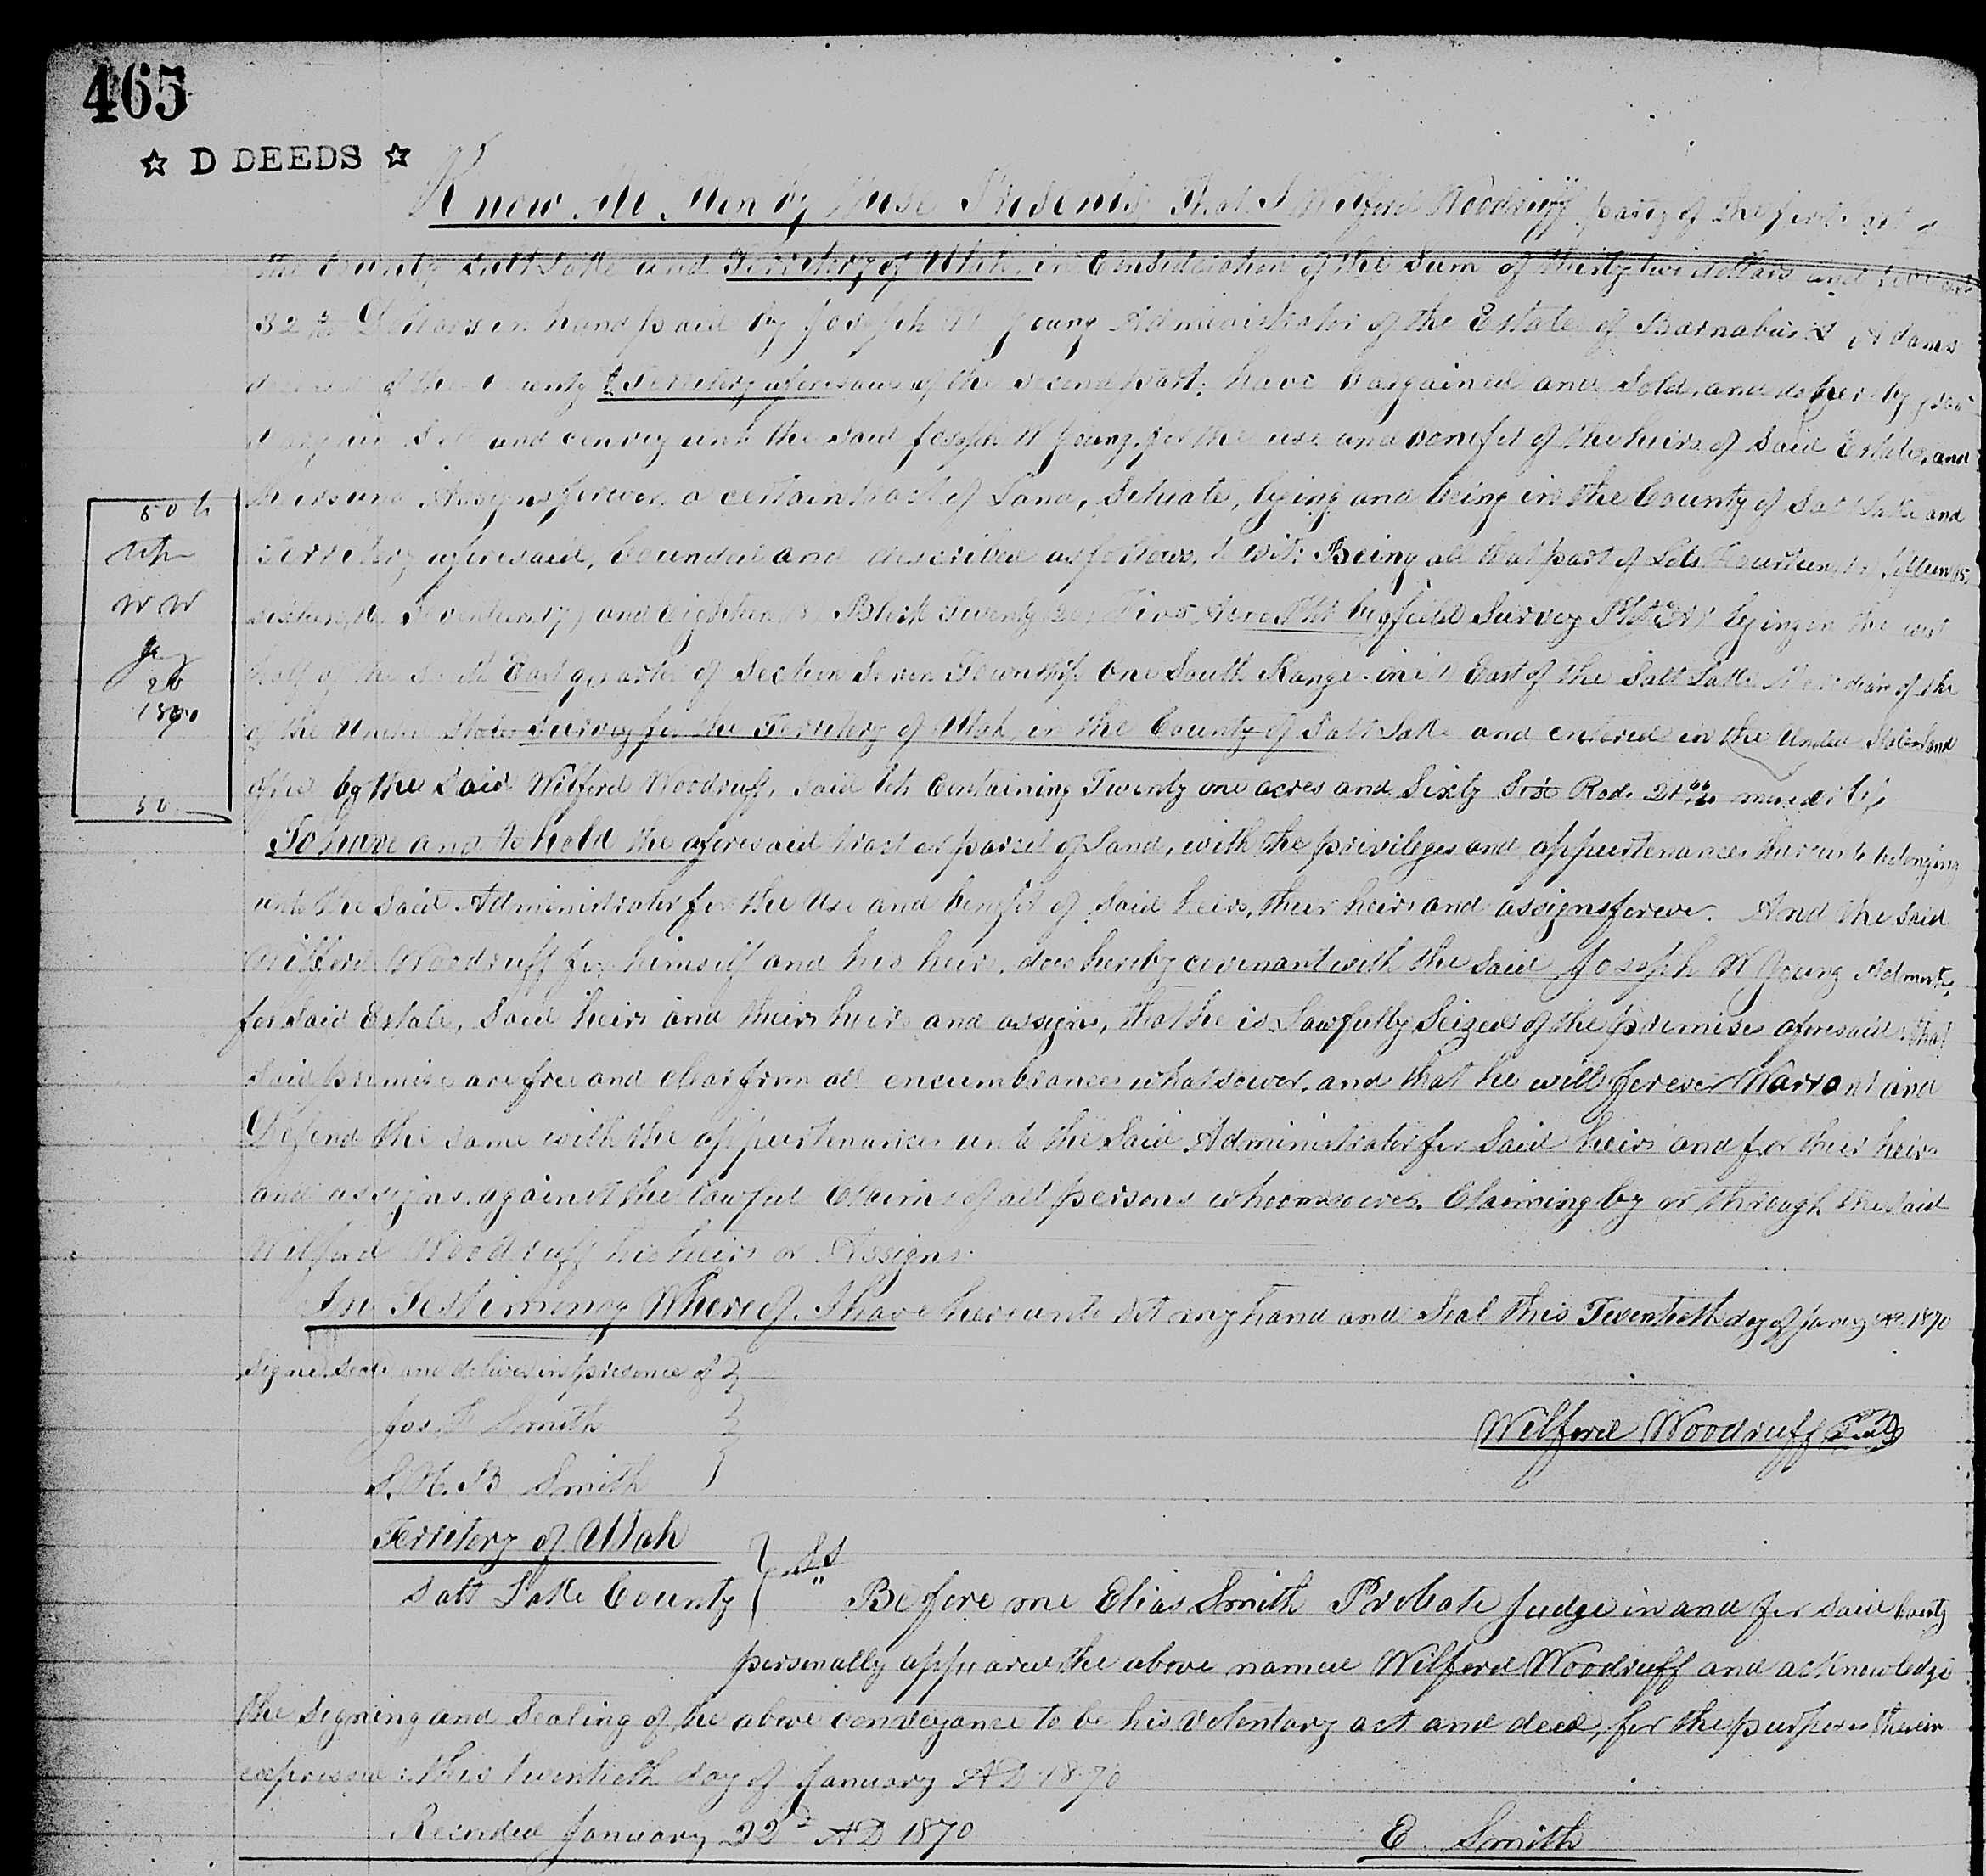 465
☆ D DEEDS ☆
Know All Men by these Presents That I Wilford Woodruff party of the first part
the County Salt Lake and Territory of Utah in Consideration of the Sum of thirty two dollars and
32 Dollars in hand paid by Joseph W Young Administrator of the Estate of Barnabas Adams
deceased of the County & Territory aforesaid of the second part; have bargained and sold, and do hereby
sell and convey unto the said Joseph W Young, for the use and benefit of the heirs of said Estate, and
their and Assigns forever, a certain tract of Land, Situate, lying and being in the County of Salt Lake and
Territory aforesaid, bounded and described as follows, to wit; Being all that part of Lots Fourteen, fifteen 15,
sixteen, 16 Seventeen 17, and Eighteen 18, Block Twenty 20, Five Acre Plat big field Survey Plat lying in the west
half of the East quarter of Section Seven Township One South Range one 1 East of the Salt Lake Meridian of the
of the United States Survey for the Territory of Utah, in the County of Salt Lake and entered in the United States Land
office by the said Wilford Woodruff, said lots Containing Twenty one acres and Sixty Rods 21 more or less
To have and to hold the aforesaid tract or parcel of Land, with the privileges and appurtenances thereunto belonging
unto the said Administrator for the Use and benefit of said heirs, their heirs and assigns forever. And the said
Wilford Woodruff for himself and his heirs, does hereby covenant with the said Joseph W Young Admnst,
for said Estate, said heirs and their heirs and assigns, that he is Lawfully Seized of the premises aforesaid; that
said premises are free and clear from all encumbrances whatsoever, and that he will forever Warrant and
Defend the same with the appurtenances unto the said Administrator for said heirs and for their heirs
and assigns, against the lawful Claims of all persons whomsoever. Claiming by or through the said
Wilford Woodruff his heirs or Assigns.
In Testimony Whereof, I have hereunto set my hand and Seal this Twentieth day of Jany AD. 1870
50
W W
Jany
20
1870
50
Signed Sealed and deliver in presence of
Jos F Smith
Wilford Woodruff Seal
S. H. B Smith
Territory of Utah
Salt Lake County SS Before me Elias Smith Probate Judge in and for said County
personally appeared the above named Wilford Woodruff and acknowledge
the signing and Sealing of the above conveyance to be his voluntary act and deed, for the purposes therein
expressed: this twentieth day of January AD 1870
Recorded January 22d AD 1870
E. Smith